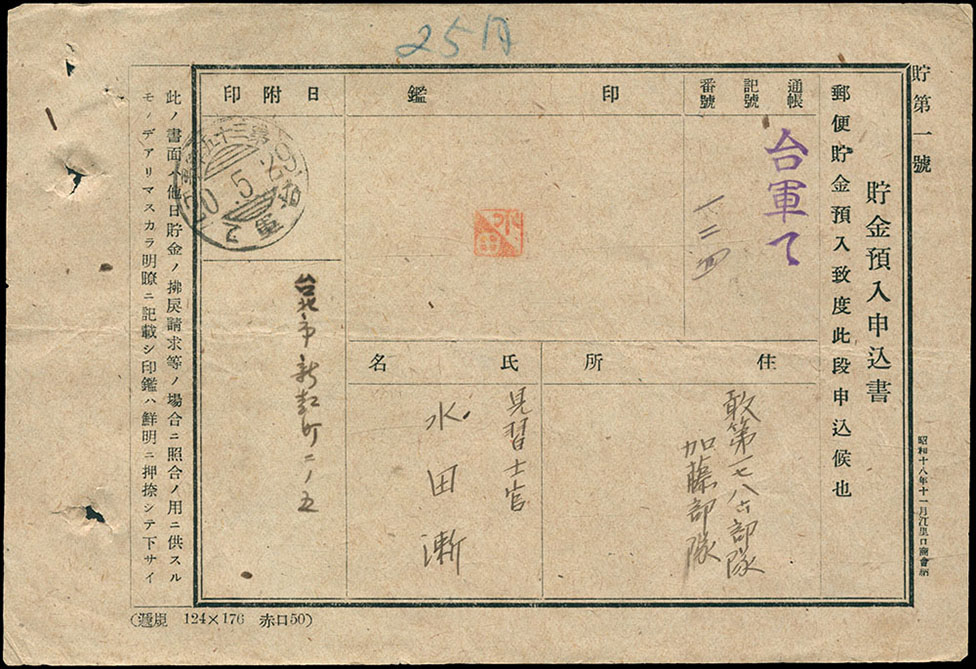 25円
貯第一號
貯金預入申込書
郵便貯金預入致度此段申込候也
通帳
記號
番號
台軍て
一二四
印鑑
水田
日附印
20.5.29
住所
敢第一七八六部隊
加藤部隊
氏名
見習士官
水田漸
台北市新起町二ノ五
此ノ書面ハ他日貯金ノ拂戻請求等ノ場合ニ照合ノ用ニ供スル
モノデアリマスカラ明瞭ニ記載シ印鑑ハ鮮明ニ押捺シテ下サイ
昭和十八年十一月江里口商會納
(遞規 124×176 赤口50)